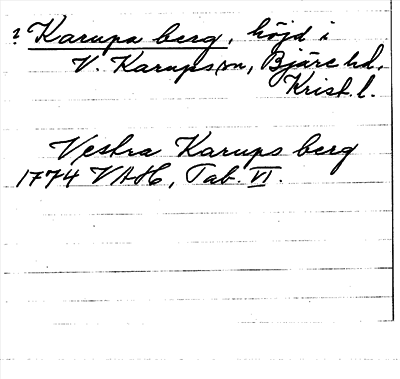 ? Karups berg, höjd i
V. Karups sn, Bjäre hd,
Krist. l.
Vestra Karups berg
1774 VAH, Tab. VI.